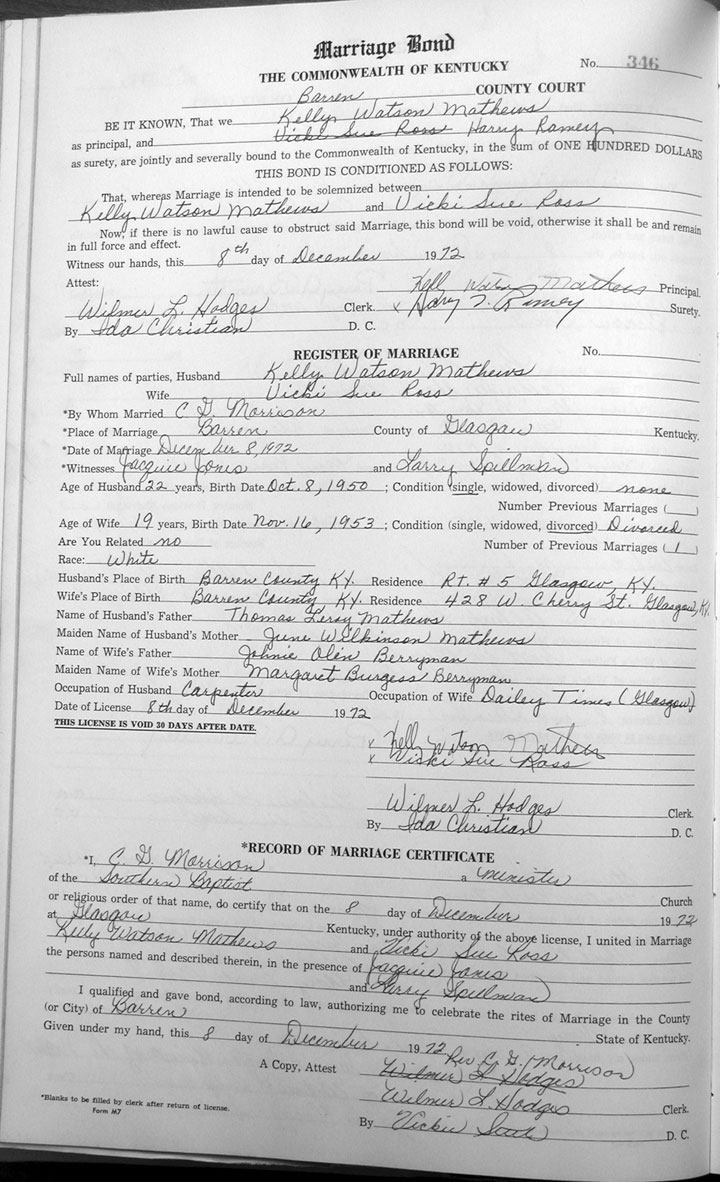 Marriage Bond
THE COMMONWEALTH OF KENTUCKY No. 346
Barren COUNTY COURT
BE IT KNOWN, That we Kelly Watson Mathews
as principal, and Vicki Sue Ross Harry Ramey
as surety, are jointly and severally bound to the Commonwealth of Kentucky, in the sum of ONE HUNDRED DOLLARS
THIS BOND IS CONDITIONED AS FOLLOWS:
That, whereas Marriage is intended to be solemnized between
Kelly Watson Mathews and Vicki Sue Ross
Now, if there is no lawful cause to obstruct said Marriage, this bond will be void, otherwise it shall be and remain
in full force and effect.
Witness our hands, this 8th day of December 1972
Attest: Kelly Watson Mathews Principal.
Wilmer L. Hodges Clerk. x Harry T. Ramey Surety.
By Ida Christian D. C.
REGISTER OF MARRIAGE No.
Full names of parties, Husband Kelly Watson Mathews
Wife Vicki Sue Ross
*By Whom Married C G. Morrison
*Place of Marriage Barren County of Glasgow Kentucky.
*Date of Marriage December 8, 1972
*Witnesses Jacquie Jones and Larry Spillman
Age of Husband 22 years, Birth Date Oct. 8, 1950 ; Condition (single, widowed, divorced) none
Number Previous Marriages ( )
Age of Wife 19 years, Birth Date Nov. 16, 1953 ; Condition (single, widowed, divorced) Divorced
Are You Related no Number of Previous Marriages ( 1 )
Race: White
Husband's Place of Birth Barren County Ky. Residence Rt. # 5 Glasgow, Ky.
Wife's Place of Birth Barren County, Ky. Residence 428 W. Cherry St. Glasgow, Ky.
Name of Husband's Father Thomas Leroy Mathews
Maiden Name of Husband's Mother June Wilkinson Mathews
Name of Wife's Father Johnie Olen Berryman
Maiden Name of Wife's Mother Margaret Burgess Berryman
Occupation of Husband Carpenter Occupation of Wife Dailey Times (Glasgow)
Date of License 8th day of December 1972
THIS LICENSE IS VOID 30 DAYS AFTER DATE.
x Kelly Watson Mathews
x Vicki Sue Ross
Wilmer L. Hodges Clerk.
By Ida Christian D. C.
*RECORD OF MARRIAGE CERTIFICATE
*I, C. G. Morrison a minister
of the Southern Baptist Church
or religious order of that name, do certify that on the 8 day of December 1972
at Glasgow Kentucky, under authority of the above license, I united in Marriage
Kelly Watson Mathews and Vicki Sue Ross
the persons named and described therein, in the presence of Jacquie Jones
and Larry Spillman
I qualified and gave bond, according to law, authorizing me to celebrate the rites of Marriage in the County
(or City) of Barren State of Kentucky.
Given under my hand, this 8 day of December 1972 Rev C. G. Morrison
A Copy, Attest Wilmer L Hodges
Wilmer L. Hodges Clerk.
*Blanks to be filled by clerk after return of license.
Form M7
By Vickie D. C.